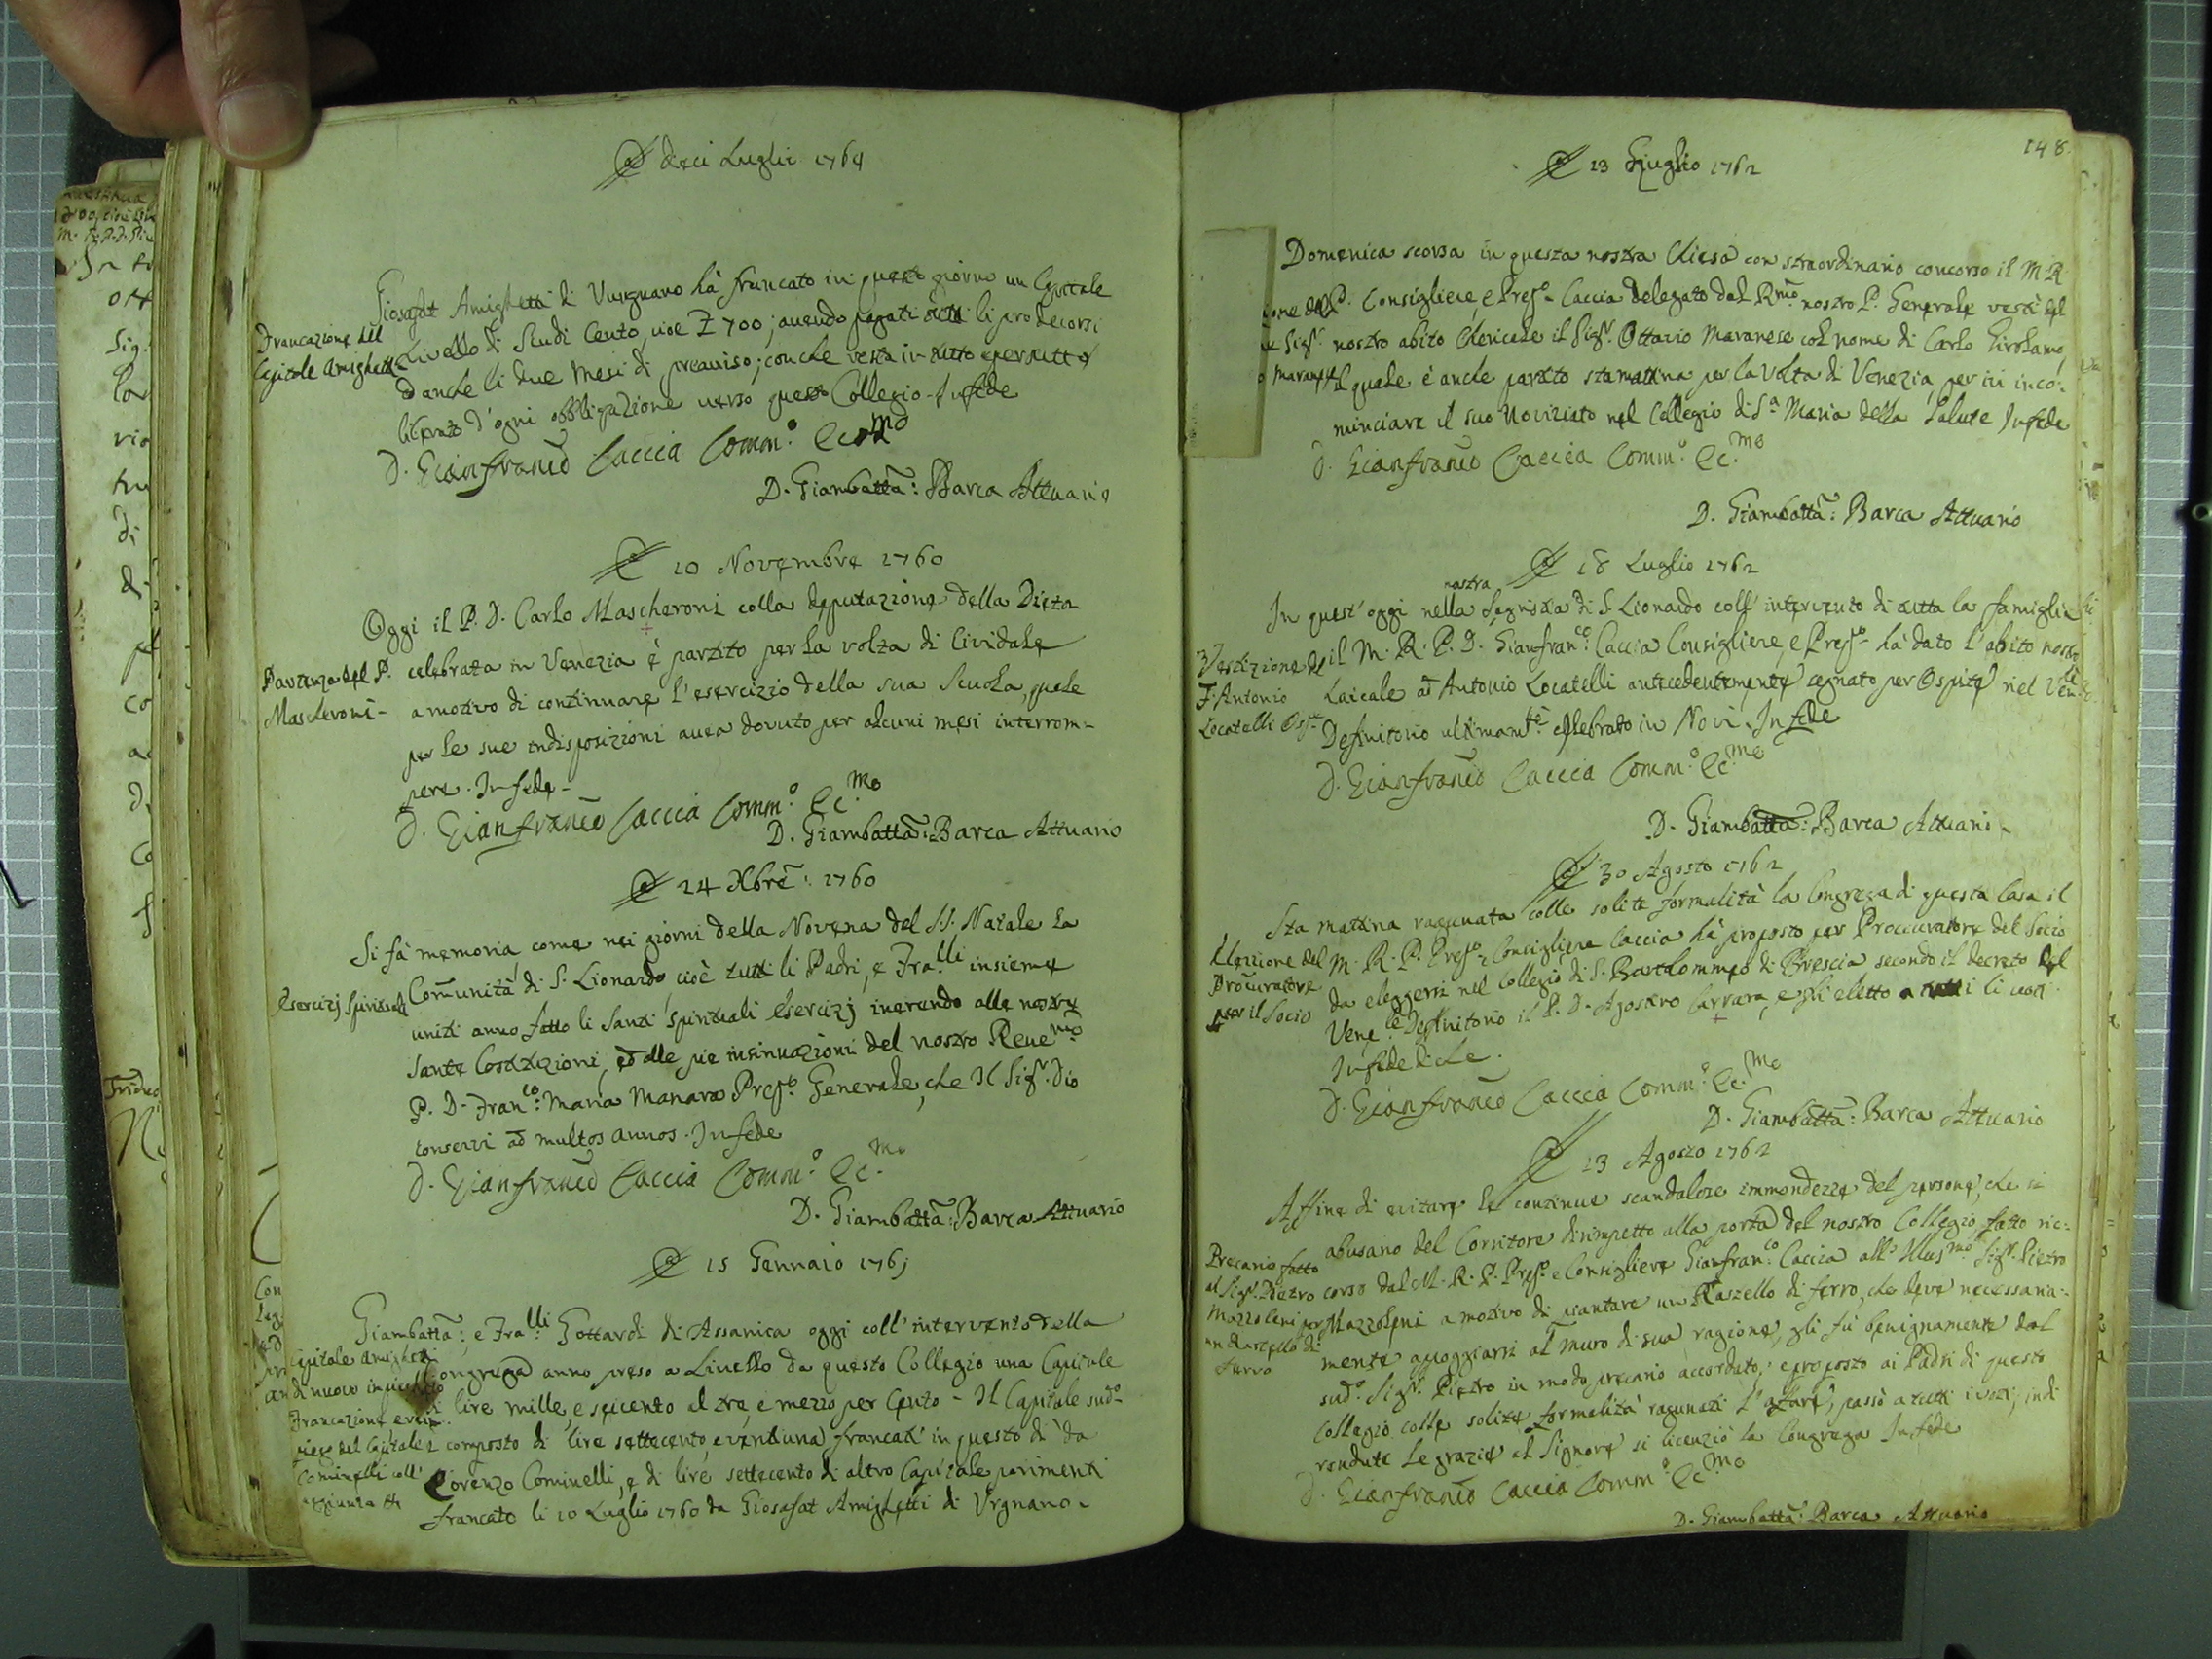 dieci Luglio 1764
Giosafat Amighetti di Vurgnano hà francato in questo giorno un Capitale
Francazione del
Capitale Amighetti
Livello di Scudi Cento, cioè Z 700; avendo pagati li pro decorsi
d'anche li due Mesi di preaviso; con che resta in tutto e per tutto
liberato d'ogni obbligazione verso questo Collegio. In fede
D. Gianfranco Caccia Comm.º
D. Giambatta: Barca Attuario
10 Novembre 1760
Oggi il P. D. Carlo Mascheroni colla deputazione della Dieta
Partenza del P.
Mascheroni-
celebrata in Venezia è partito per la volta di Cividale
a motivo di continuare l'esercizio della sua Scuola, quale
per le sue indisposizioni avea dovuto per alcuni mesi interrom-
pere. In fede-
D. Gianfranco Caccia Comm.º Ec.mo
D. Giambatta: Barca Attuario
24 Xbre: 1760
Si fà memoria come nei giorni della Novena del SS. Natale la
Comunità di S. Lionardo, cioè tutti li Padri, e Fra.lli insieme
Esercizj Spirituali
uniti anno fatto li Santi spirituali Esercizj inerendo alle nostre
Sante Costituzioni, ed alle pie insinuazioni del nostro Reve.mo
P. D. Fran.co: Maria Manara Prep.to Generale, che Il Sig.r Dio
conservi ad multos annos. In fede
D. Gianfranco Caccia Comm.º Ec.mo
D. Giambatta: Barca Attuario
15 Gennaio 1761
Giambatta: e Fra.lli Gottardi di Assanica oggi coll'intervento della
Congrega anno preso a Livello da questo Collegio una Capitale
Capitale Amighetti
di nuovo
Francazione e
piego del Capitale
Cominelli coll'
aggiunta
di lire mille, e seicento al tre, e mezzo per Cento - Il Capitale sud.º
è composto di lire settecento, e ventiuna francati in questo dì da
Lorenzo Cominelli, e di lire settecento di altro Capitale parimenti
francato li 10 Luglio 1760 da Giosafat Amighetti di Urgnano.
148.
13 Giuglio 1762
Domenica scorsa in questa nostra Chiesa con straordinario concorso il M. R.
P. Consigliere, e Prep.to Caccia delegato dal R.mo nostro P. Generale vestì del
nostro abito Chericale il Sig.r Ottavio Maranese col nome di Carlo Girolamo,
il quale è anche partito stamattina per la Volta di Venezia, per ivi inco-
minciare il suo Noviziato nel Collegio di S.a Maria della Salute In fede
ione del
Sig.r
Maranese
D. Gianfranco Caccia Comm.º Ec.mo
D. Giambatta: Barca Attuario
18 Luglio 1762
In quest'oggi nella nostra Segristia di S. Lionardo coll'intervento di tutta la famiglia
Vestizione del
F. Antonio
Locatelli Osp.te
il M. R. P. D. Gianfran.co Caccia Consigliere, e Prep.to hà dato l'abito nostro
Laicale ad Antonio Locatelli antecedentemente segnato per Ospite nel Ven.le
Definitorio ultimam.te celebrato in Novi. In fede
D. Gianfranco Caccia Comm.º Ec.mo
D. Giambatta: Barca Attuario
30 Agosto 1762
Sta mattina ragunata colle solite formalità la Congrega di questa Casa il
Elezzione del
Procuratore
per il Socio
M. R. P. Prep.to, Consigliere Caccia hà proposto per Procuratore del Socio
da eleggersi nel Collegio di S. Bartolommeo di Brescia secondo il decreto del
Vene.le Definitorio il P. D. Agostino Carrara, e fù eletto a tutti li voti.
In fede di che.
D. Gianfranco Caccia Comm.º Ec.mo
D. Giambatta: Barca Attuario
13 Agosto 1762
Affine di evitare le continue scandalose immondezze del persone, che si
abusano del Corsitore dirimpetto alla porta del nostro Collegio, fatto ric-
Precario fatto
al Sig.r Pietro
Mazzoleni per
un Rastello di
ferro
corso dal M. R. P. Prep.to e Consigliere Gianfran.co Caccia all'Illus.mo Sig.r Pietro
Mazzoleni a motivo di piantare un Rastello di ferro, che deve necessaria-
mente appoggiarsi al muro di sua ragione, gli fù benignamente dal
sud.º Sig.r Pietro in modo precario accordato; e proposto ai Padri di questo
Collegio colle solite formalità ragunati l'affare, passò a tutti i voti; indi
rendute le grazie al Signore si licenziò la Congrega In fede
D. Gianfranco Caccia Comm.º Ec.mo
D. Giambatta: Barca Attuario